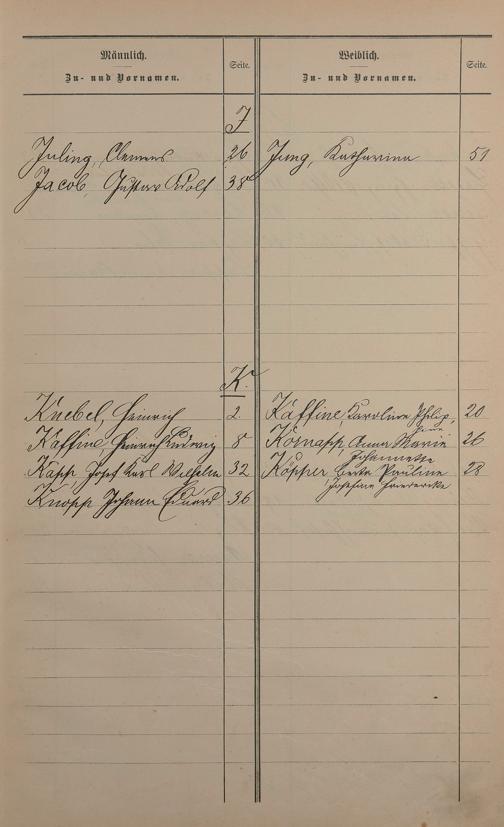 Männlich.
Zu- und Vornamen.
Seite.
Weiblich.
Zu- und Vornamen.
Seite.
J
Juling, Clemens 26
Jung, Katharina 51
Jacob, Gustav Adolf 38
K.
Knebel, Heinrich 2.
Käffine, Karoline Philip, 20
Käffine, Heinrich Ludwig 8
Anna Marie 26
Johannette
Kapp, Josef Karl Wilhelm 32
Köpper Berta Pauline 28
Josefine Friedericke
Knopp Johann Eduard 36